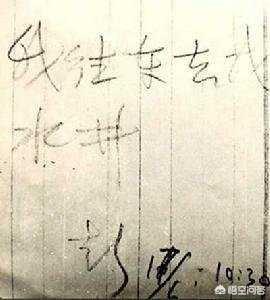 我往东去找
水井
彭
17/6:10:30
悟空问答